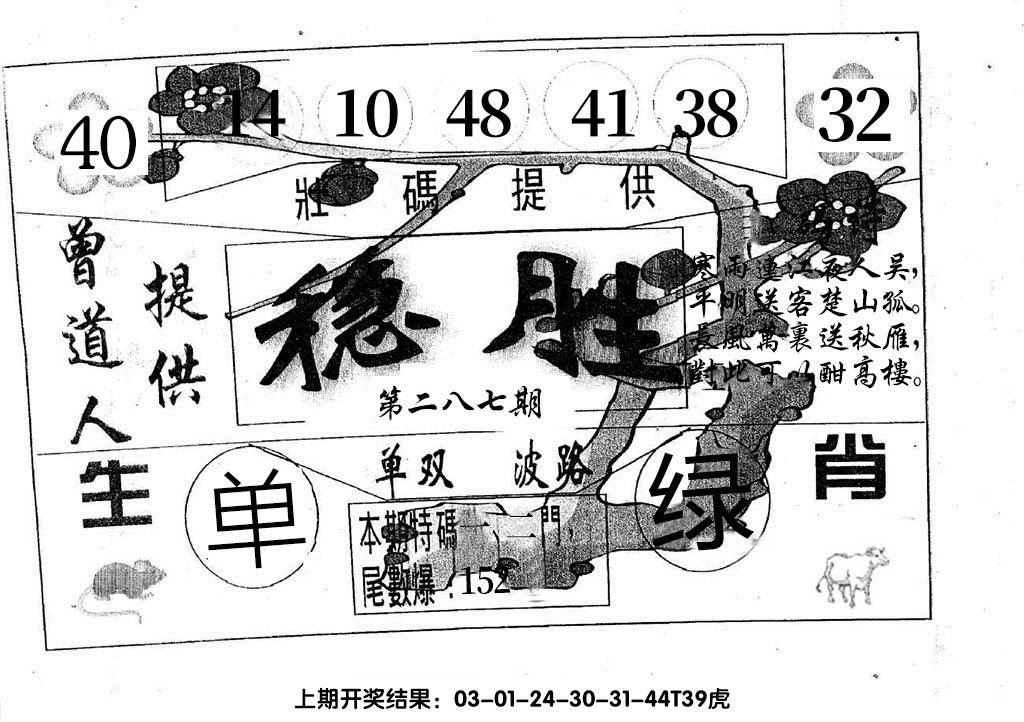 40 14 10 48 41 38 32
壯碼提供
曾道人
提供
稳胜
第二八七期
寒雨連江夜人吴，
平明送客楚山孤。
長風萬裏送秋雁，
對此可以酣高樓。
单双 波路
生 单 绿 肖
本期特碼一、二門，
尾數爆：152
上期开奖结果：03-01-24-30-31-44T39虎